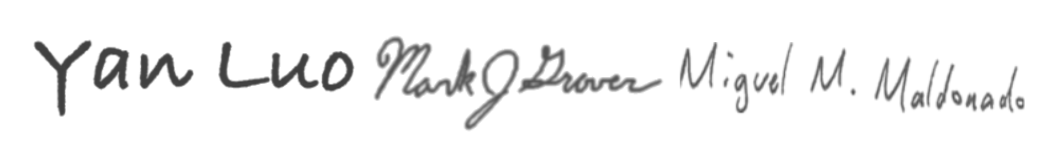 Yan Luo Mark J Grover Miguel M. Maldonado